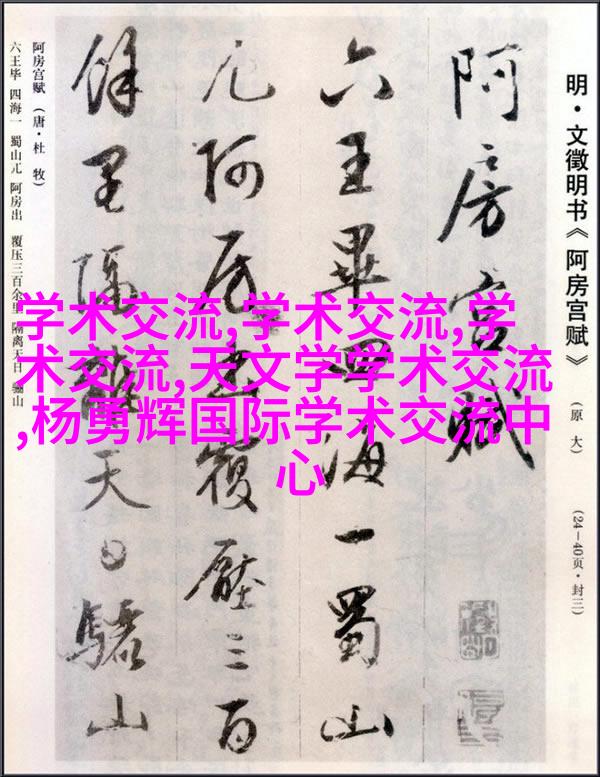 明·文徵明书《阿房宫赋》（原大）（24—40页·封三）
阿房宫赋
六王畢四海一蜀山
兀阿房出覆壓三百
餘里隔離天日驪山
阿房宫赋（唐·杜 牧）
六王毕 四海一 蜀山兀 阿房出 覆压三百余里 隔离天日 骊山
学术交流,学术交流,学
术交流,天文学学术交流
,杨勇辉国际学术交流中
心